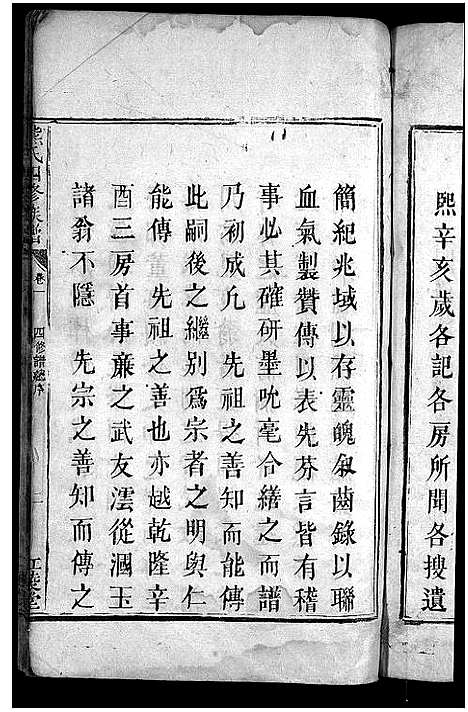 熙辛亥歲各記各房所聞各搜遺
簡紀兆域以存靈魄叙齒錄以聯
血氣製贊傳以表先芬言皆有稽
事必其確研墨吮毫合繕之而譜
乃初成凢 先祖之善知而能傳
此嗣後之繼别爲宗者之明與仁
能傳 先祖之善也亦越乾隆辛
酉三房首事廉之武友澐從涸玉
諸翁不隱 先宗之善知而傳之
氏四修族譜 卷一 四修譜總序